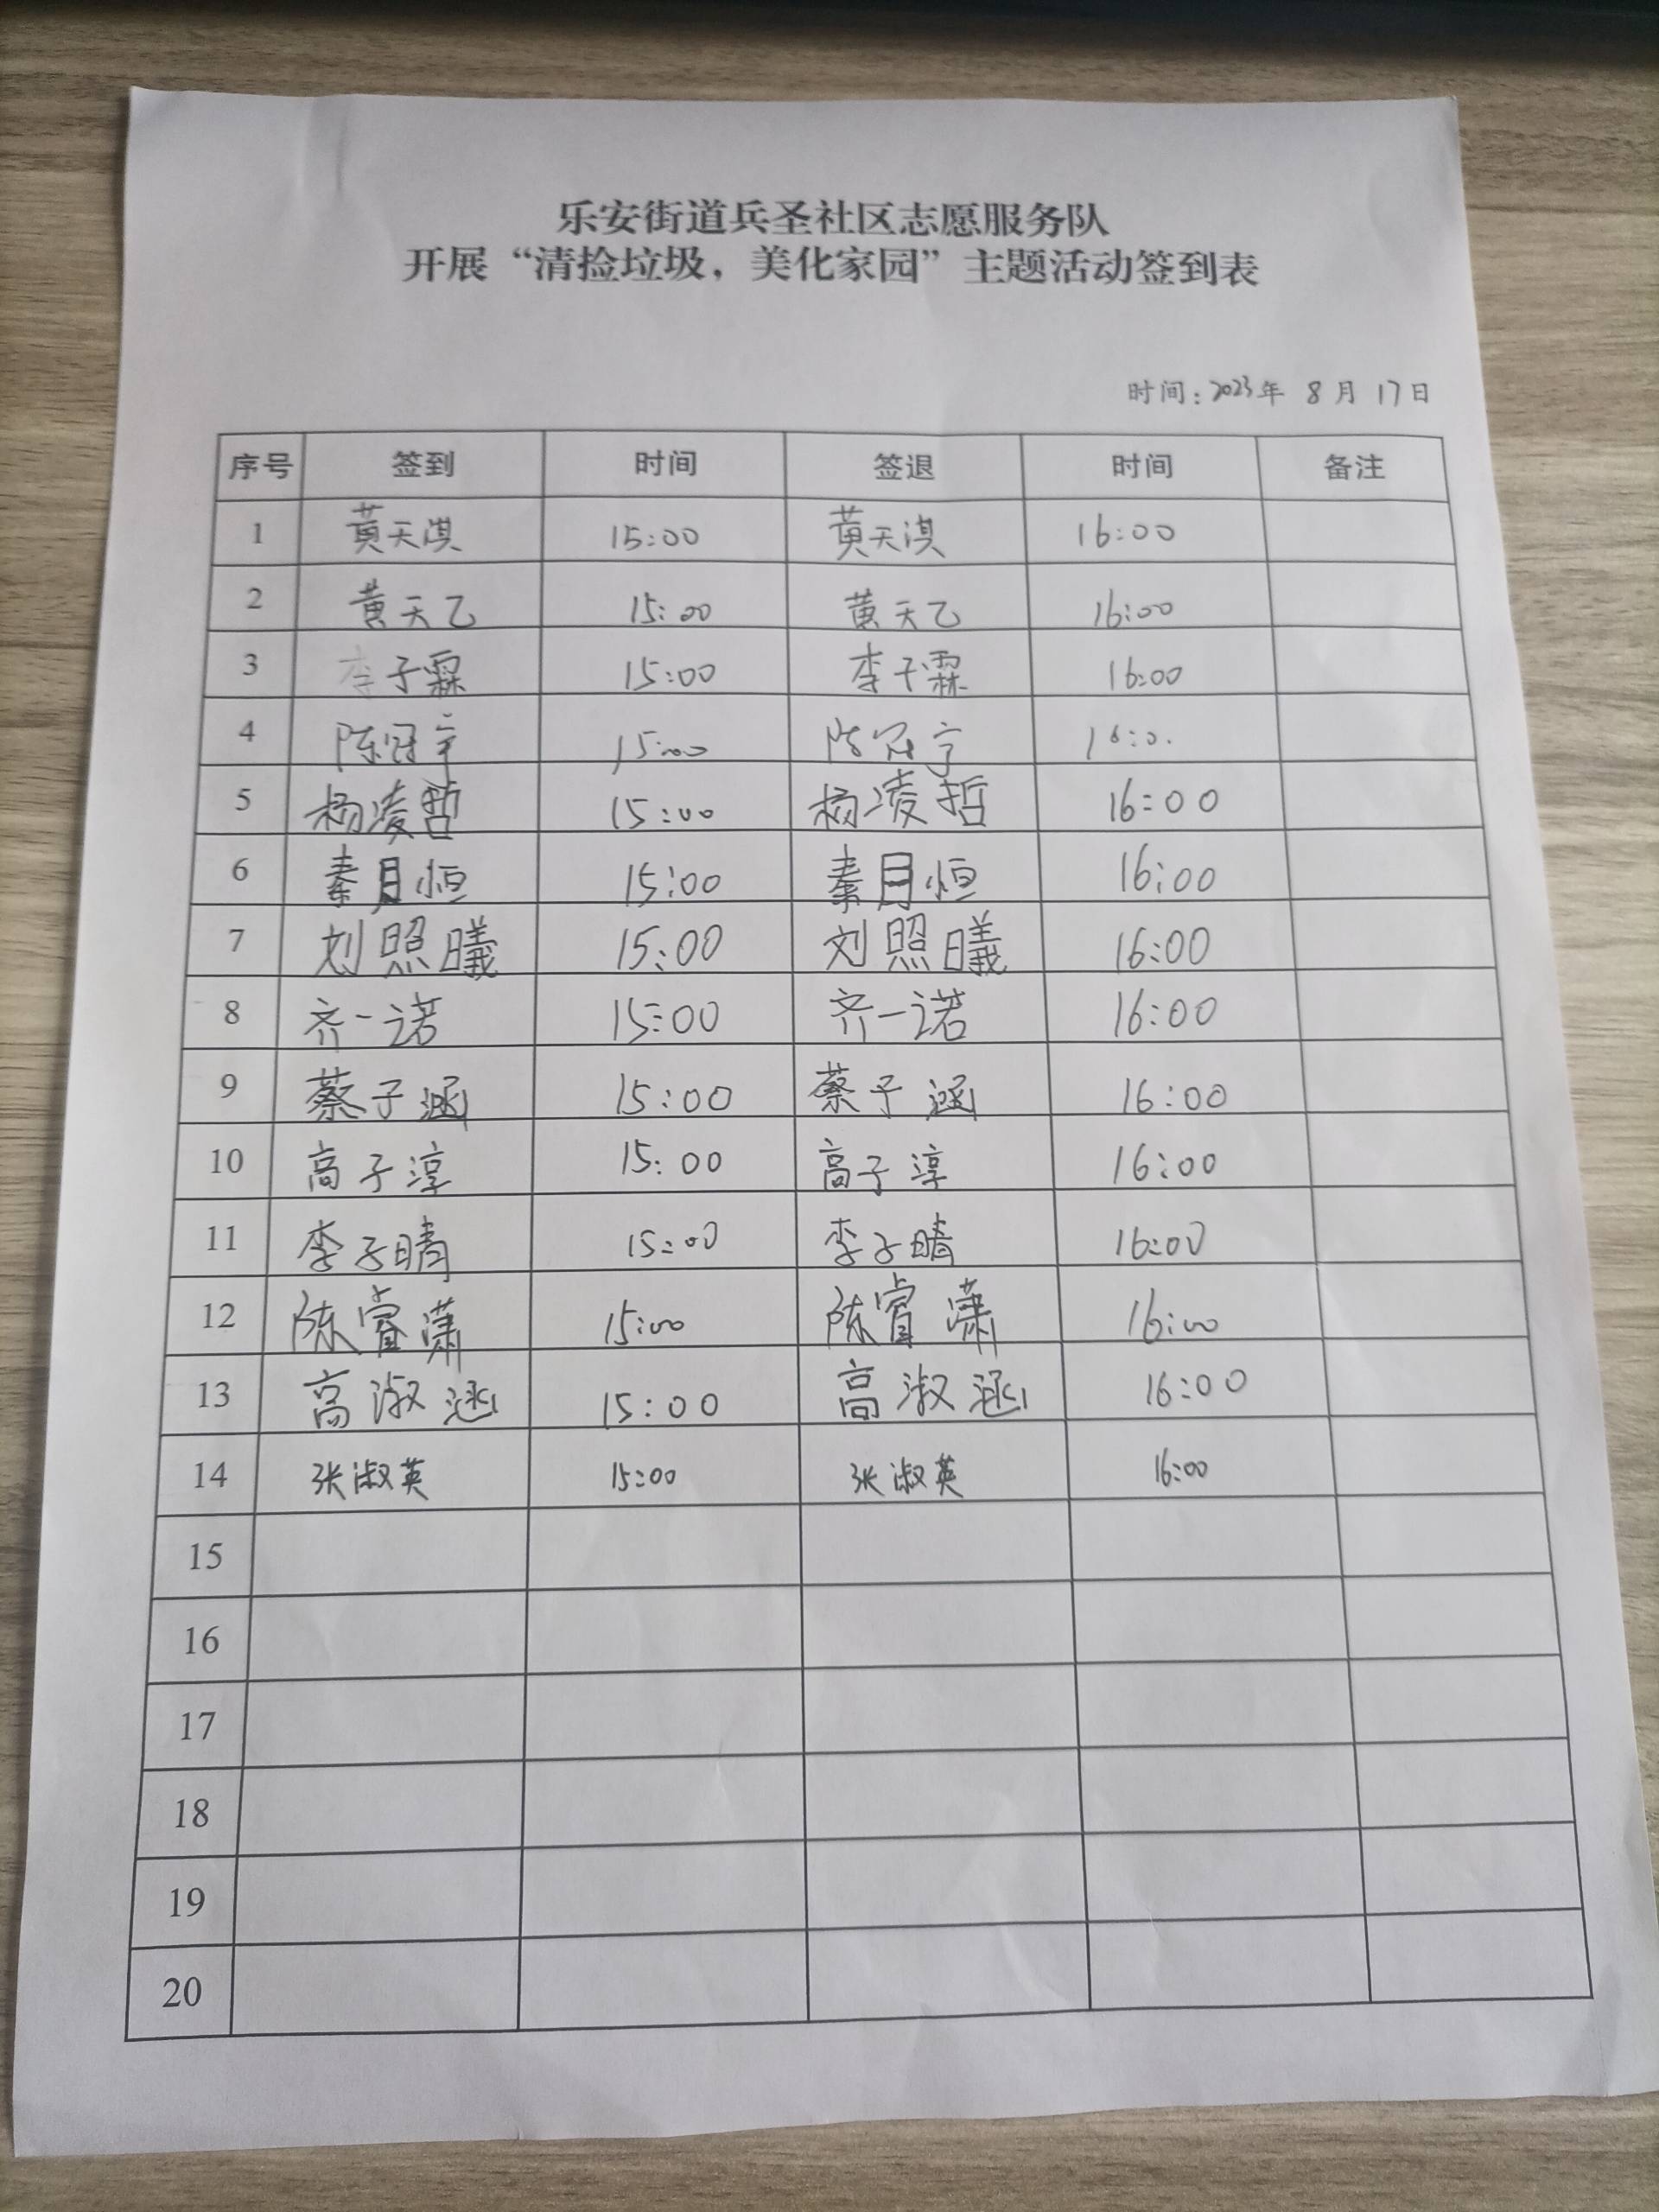 乐安街道兵圣社区志愿服务队
开展“清捡垃圾，美化家园”主题活动签到表
时间：2023年 8月 17日
序号 签到 时间 签退 时间 备注
1 黄天淇 15:00 黄天淇 16:00
2 黄天乙 15:00 黄天乙 16:00
3 李子霖 15:00 李子霖 16:00
4 陈冠宇 15:00 陈冠宇 16:0.
5 杨凌哲 15:00 杨凌哲 16:00
6 秦月恒 15:00 秦月恒 16:00
7 刘照曦 15:00 刘照曦 16:00
8 齐一诺 15:00 齐一诺 16:00
9 蔡子涵 15:00 蔡子涵 16:00
10 高子淳 15:00 高子淳 16:00
11 李子晴 15:00 李子晴 16:00
12 陈睿潇 15:00 陈睿潇 16:00
13 高淑涵 15:00 高淑涵 16:00
14 张淑英 15:00 张淑英 16:00
15
16
17
18
19
20